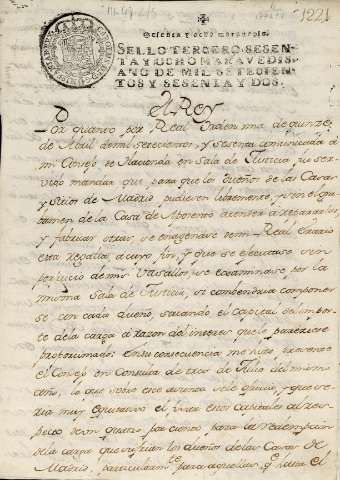 1221
Sesenta y ocho maravedis.
SELLO TERCERO, SESEN-
TA Y OCHO MARAVEDIS,
AÑO DE MIL SETECIEN-
TOS Y SESENTA Y DOS.
El Rey
Por quanto por Real orden mia de quinze
de Abril de mil setecientos y sesenta comunicada a
mi Consejo de Hacienda en Sala de Justicia, fui ser-
vido mandar que para que los Dueños de las Casas
y Sitios de Madrid pudiesen libremente, y sin el gra-
vamen de la Casa de Aposento atender a repararlas
y fabricar otras, se enagenase de mi Real Erario
esta regalia, a cuyo fin, y que se ejecutase sin
perjuicio de mis Vasallos, se examinase, por la
misma Sala de Justicia, si combendria componer-
se con cada dueño, sacando el capital del impor-
te dela carga a razon del interes que le pareciese
proporcionado. En su consecuencia me hizo presente
el Consejo en Consulta de tres de Julio del mismo
año, lo que sobre este asumpto se le ofrecia, y que se-
ria muy equitativo el
pecto de un quatro por ciento para la redempcion
de la carga que sufrian los dueños de las Casas de
Madrid, particularmte para aquellas, q.e hasta el